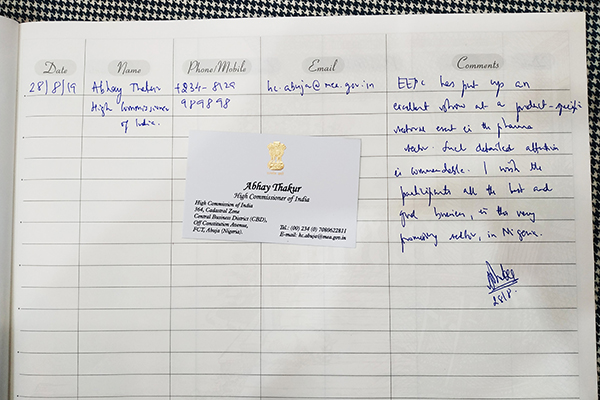 Date Name Phone/Mobile Email Comments
28/8/19 Abhay Thakur +234-8129 hc.abuja@mea.gov.in EEPC has put up an
High Commissioner 989898 excellent show at a product-specific
of India. sectoral event in the pharma
sector. Such detailed attention
is commendable. I wish the
participants all the best and
good business, in this very
promising sector, in Nigeria.
28/8.
Abhay Thakur
High Commissioner of India
High Commission of India
364, Cadastral Zone
Central Business District (CBD),
Off Constitution Avenue,
FCT, Abuja (Nigeria).
Tel.: (00) 234 (0) 7080622811
E-mail: hc.abuja@mea.gov.in